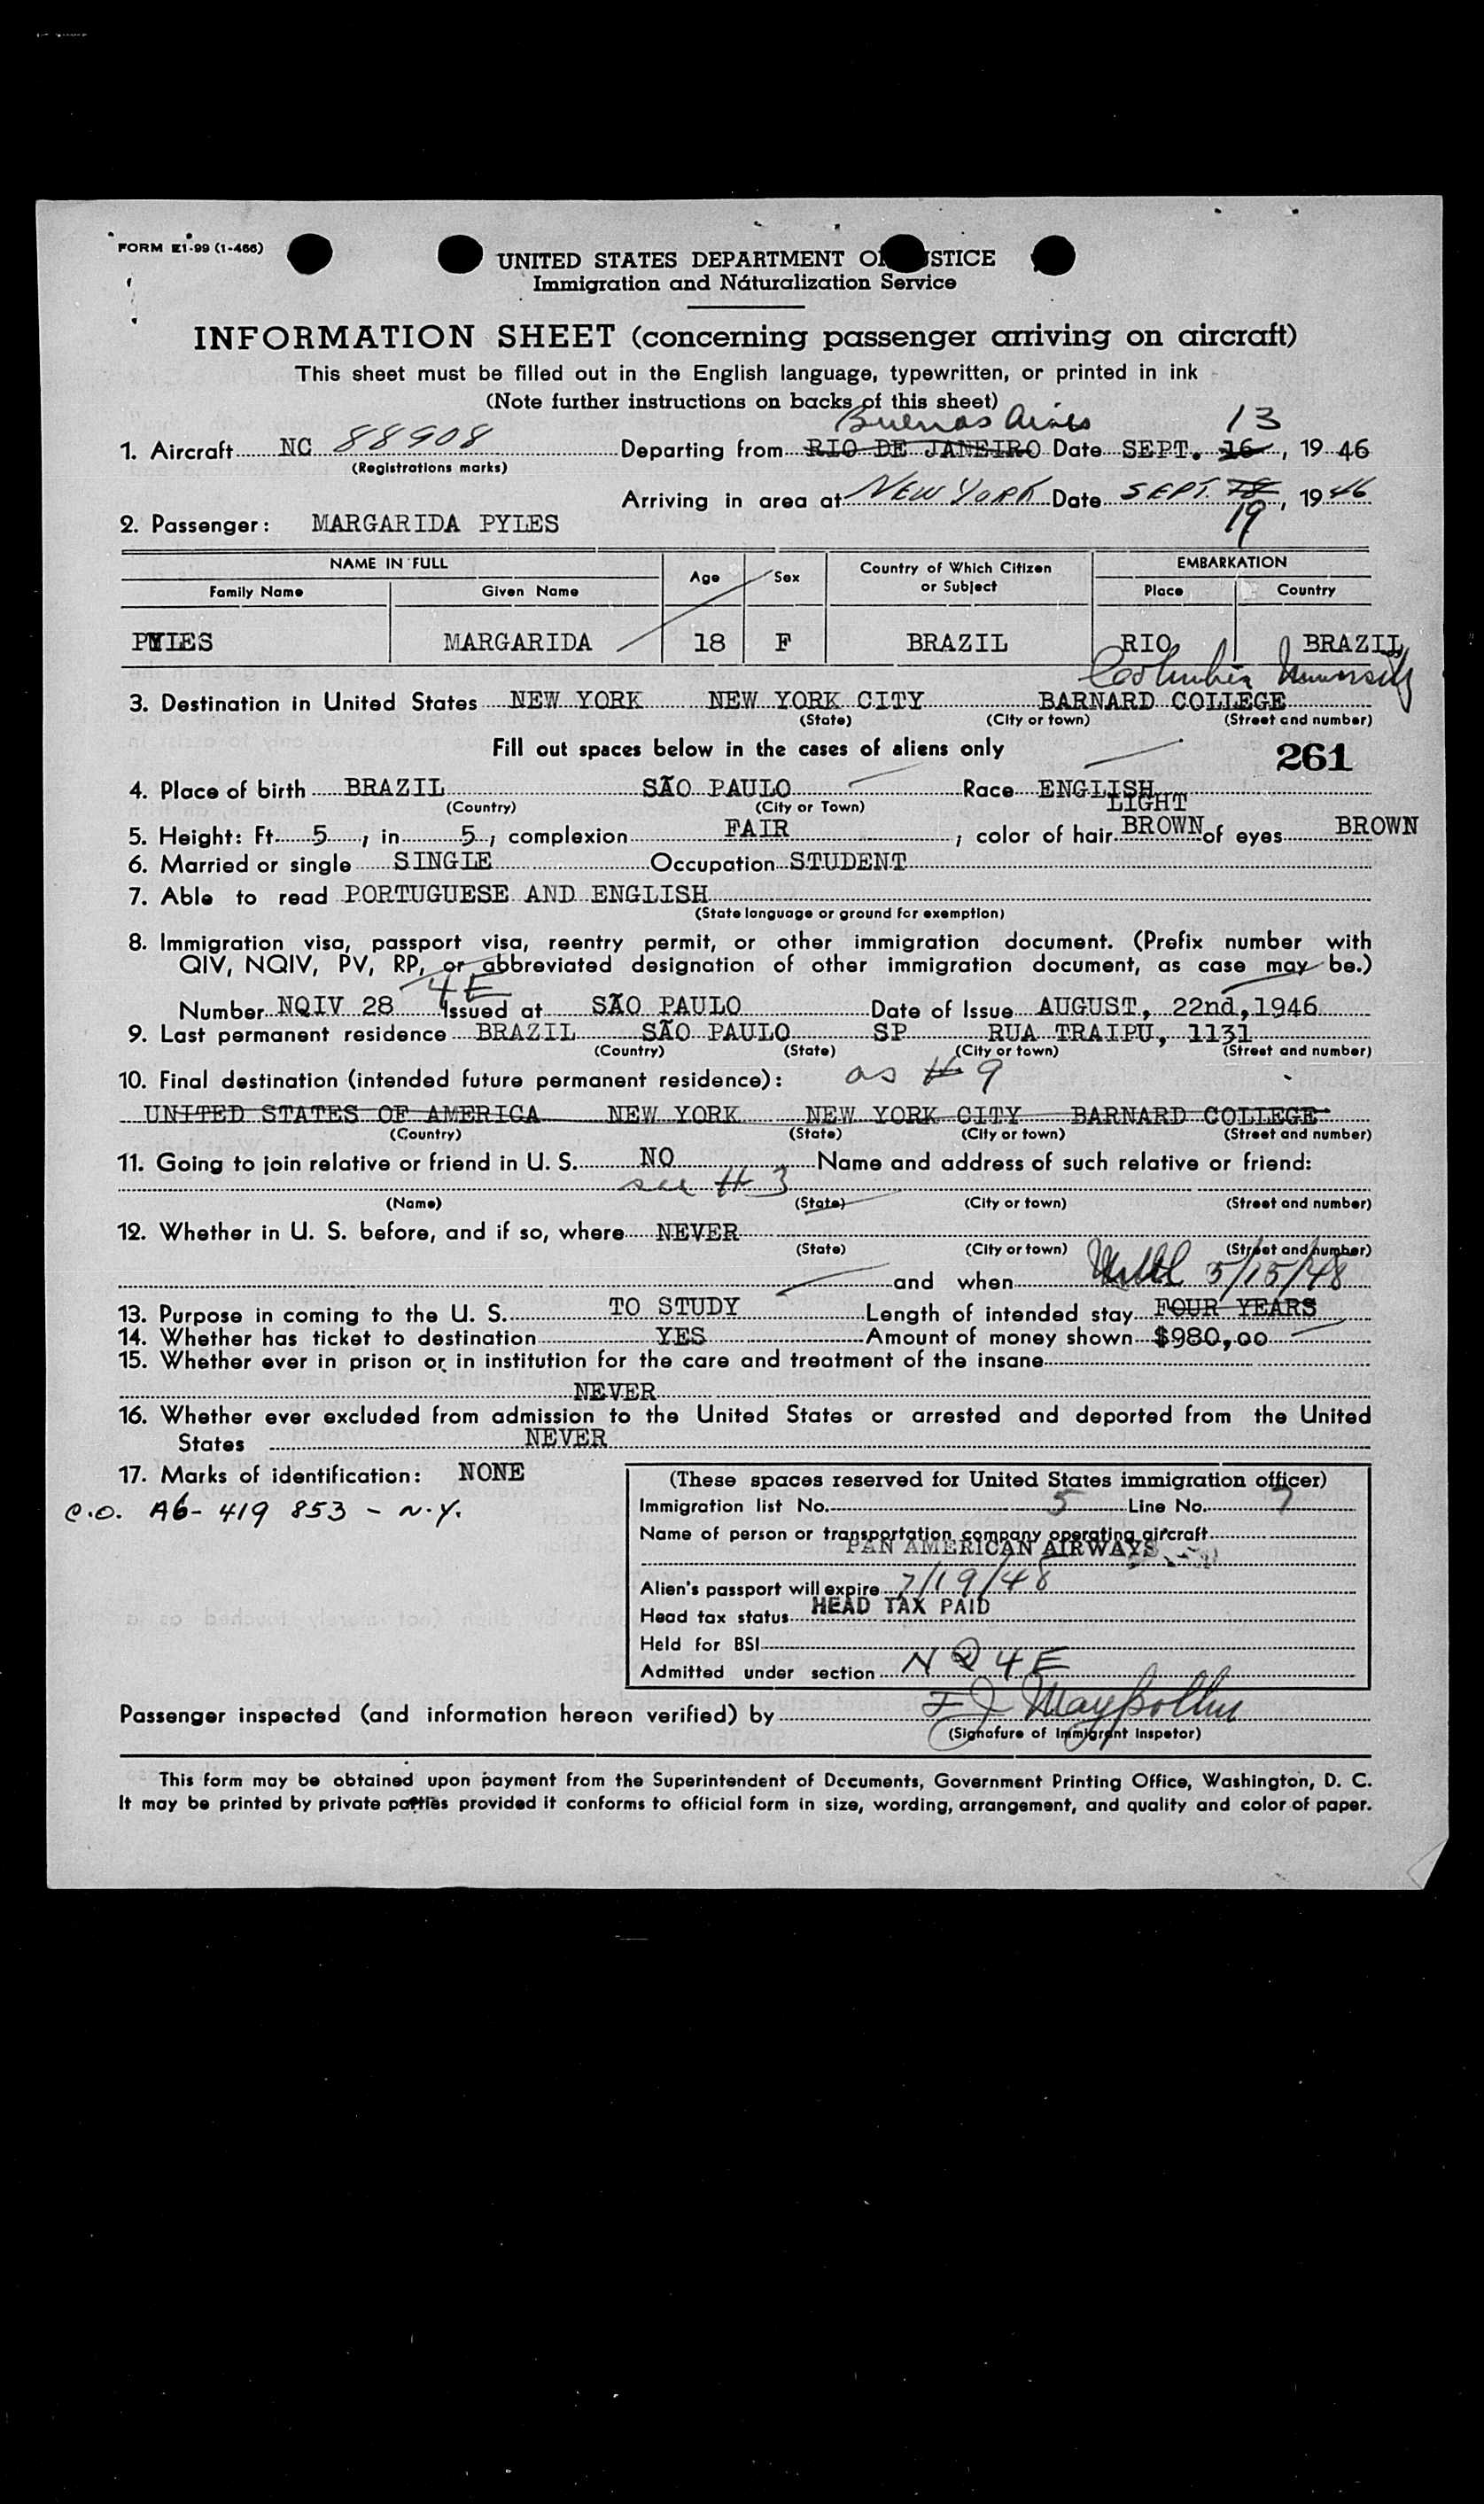 FORM E1-99 (1-466)
UNITED STATES DEPARTMENT OF JUSTICE
Immigration and Naturalization Service
INFORMATION SHEET (concerning passenger arriving on aircraft)
This sheet must be filled out in the English language, typewritten, or printed in ink
(Note further instructions on backs of this sheet)
Buenos Aires 13
1. Aircraft NC 88908 Departing from RIO DE JANEIRO Date SEPT. 16, 19 46
(Registrations marks)
Arriving in area at NEW YORK Date SEPT. 18, 19 46
19
2. Passenger: MARGARIDA PYLES
NAME IN FULL Age Sex Country of Which Citizen or Subject EMBARKATION
Family Name Given Name Place Country
PYLES MARGARIDA 18 F BRAZIL RIO BRAZIL
Columbia University
3. Destination in United States NEW YORK NEW YORK CITY BARNARD COLLEGE
(State) (City or town) (Street and number)
Fill out spaces below in the cases of aliens only 261
4. Place of birth BRAZIL SÃO PAULO Race ENGLISH
(Country) (City or Town) LIGHT
5. Height: Ft. 5, in 5, complexion FAIR, color of hair BROWN of eyes BROWN
6. Married or single SINGLE Occupation STUDENT
7. Able to read PORTUGUESE AND ENGLISH
(State language or ground for exemption)
8. Immigration visa, passport visa, reentry permit, or other immigration document. (Prefix number with
QIV, NQIV, PV, RP, or abbreviated designation of other immigration document, as case may be.)
4E
Number NQIV 28 Issued at SÃO PAULO Date of Issue AUGUST, 22nd, 1946
9. Last permanent residence BRAZIL SÃO PAULO SP RUA TRAIPU, 1131
(Country) (State) (City or town) (Street and number)
10. Final destination (intended future permanent residence): as # 9
UNITED STATES OF AMERICA NEW YORK NEW YORK CITY BARNARD COLLEGE
(Country) (State) (City or town) (Street and number)
11. Going to join relative or friend in U. S. NO Name and address of such relative or friend:
see # 3
(Name) (State) (City or town) (Street and number)
12. Whether in U. S. before, and if so, where NEVER
(State) (City or town) (Street and number)
and when Until 5/15/48
13. Purpose in coming to the U. S. TO STUDY Length of intended stay FOUR YEARS
14. Whether has ticket to destination YES Amount of money shown $980,00
15. Whether ever in prison or in institution for the care and treatment of the insane
NEVER
16. Whether ever excluded from admission to the United States or arrested and deported from the United
States NEVER
17. Marks of identification: NONE
C.O. A6- 419 853 - N.Y.
(These spaces reserved for United States immigration officer)
Immigration list No. 5 Line No. 7
Name of person or transportation company operating aircraft
PAN AMERICAN AIRWAYS
Alien's passport will expire 7/19/48
Head tax status HEAD TAX PAID
Held for BSI
Admitted under section NQ 4E
Passenger inspected (and information hereon verified) by F J
(Signafure of Immigrant Inspetor)
This form may be obtained upon payment from the Superintendent of Documents, Government Printing Office, Washington, D. C.
It may be printed by private parties provided it conforms to official form in size, wording, arrangement, and quality and color of paper.